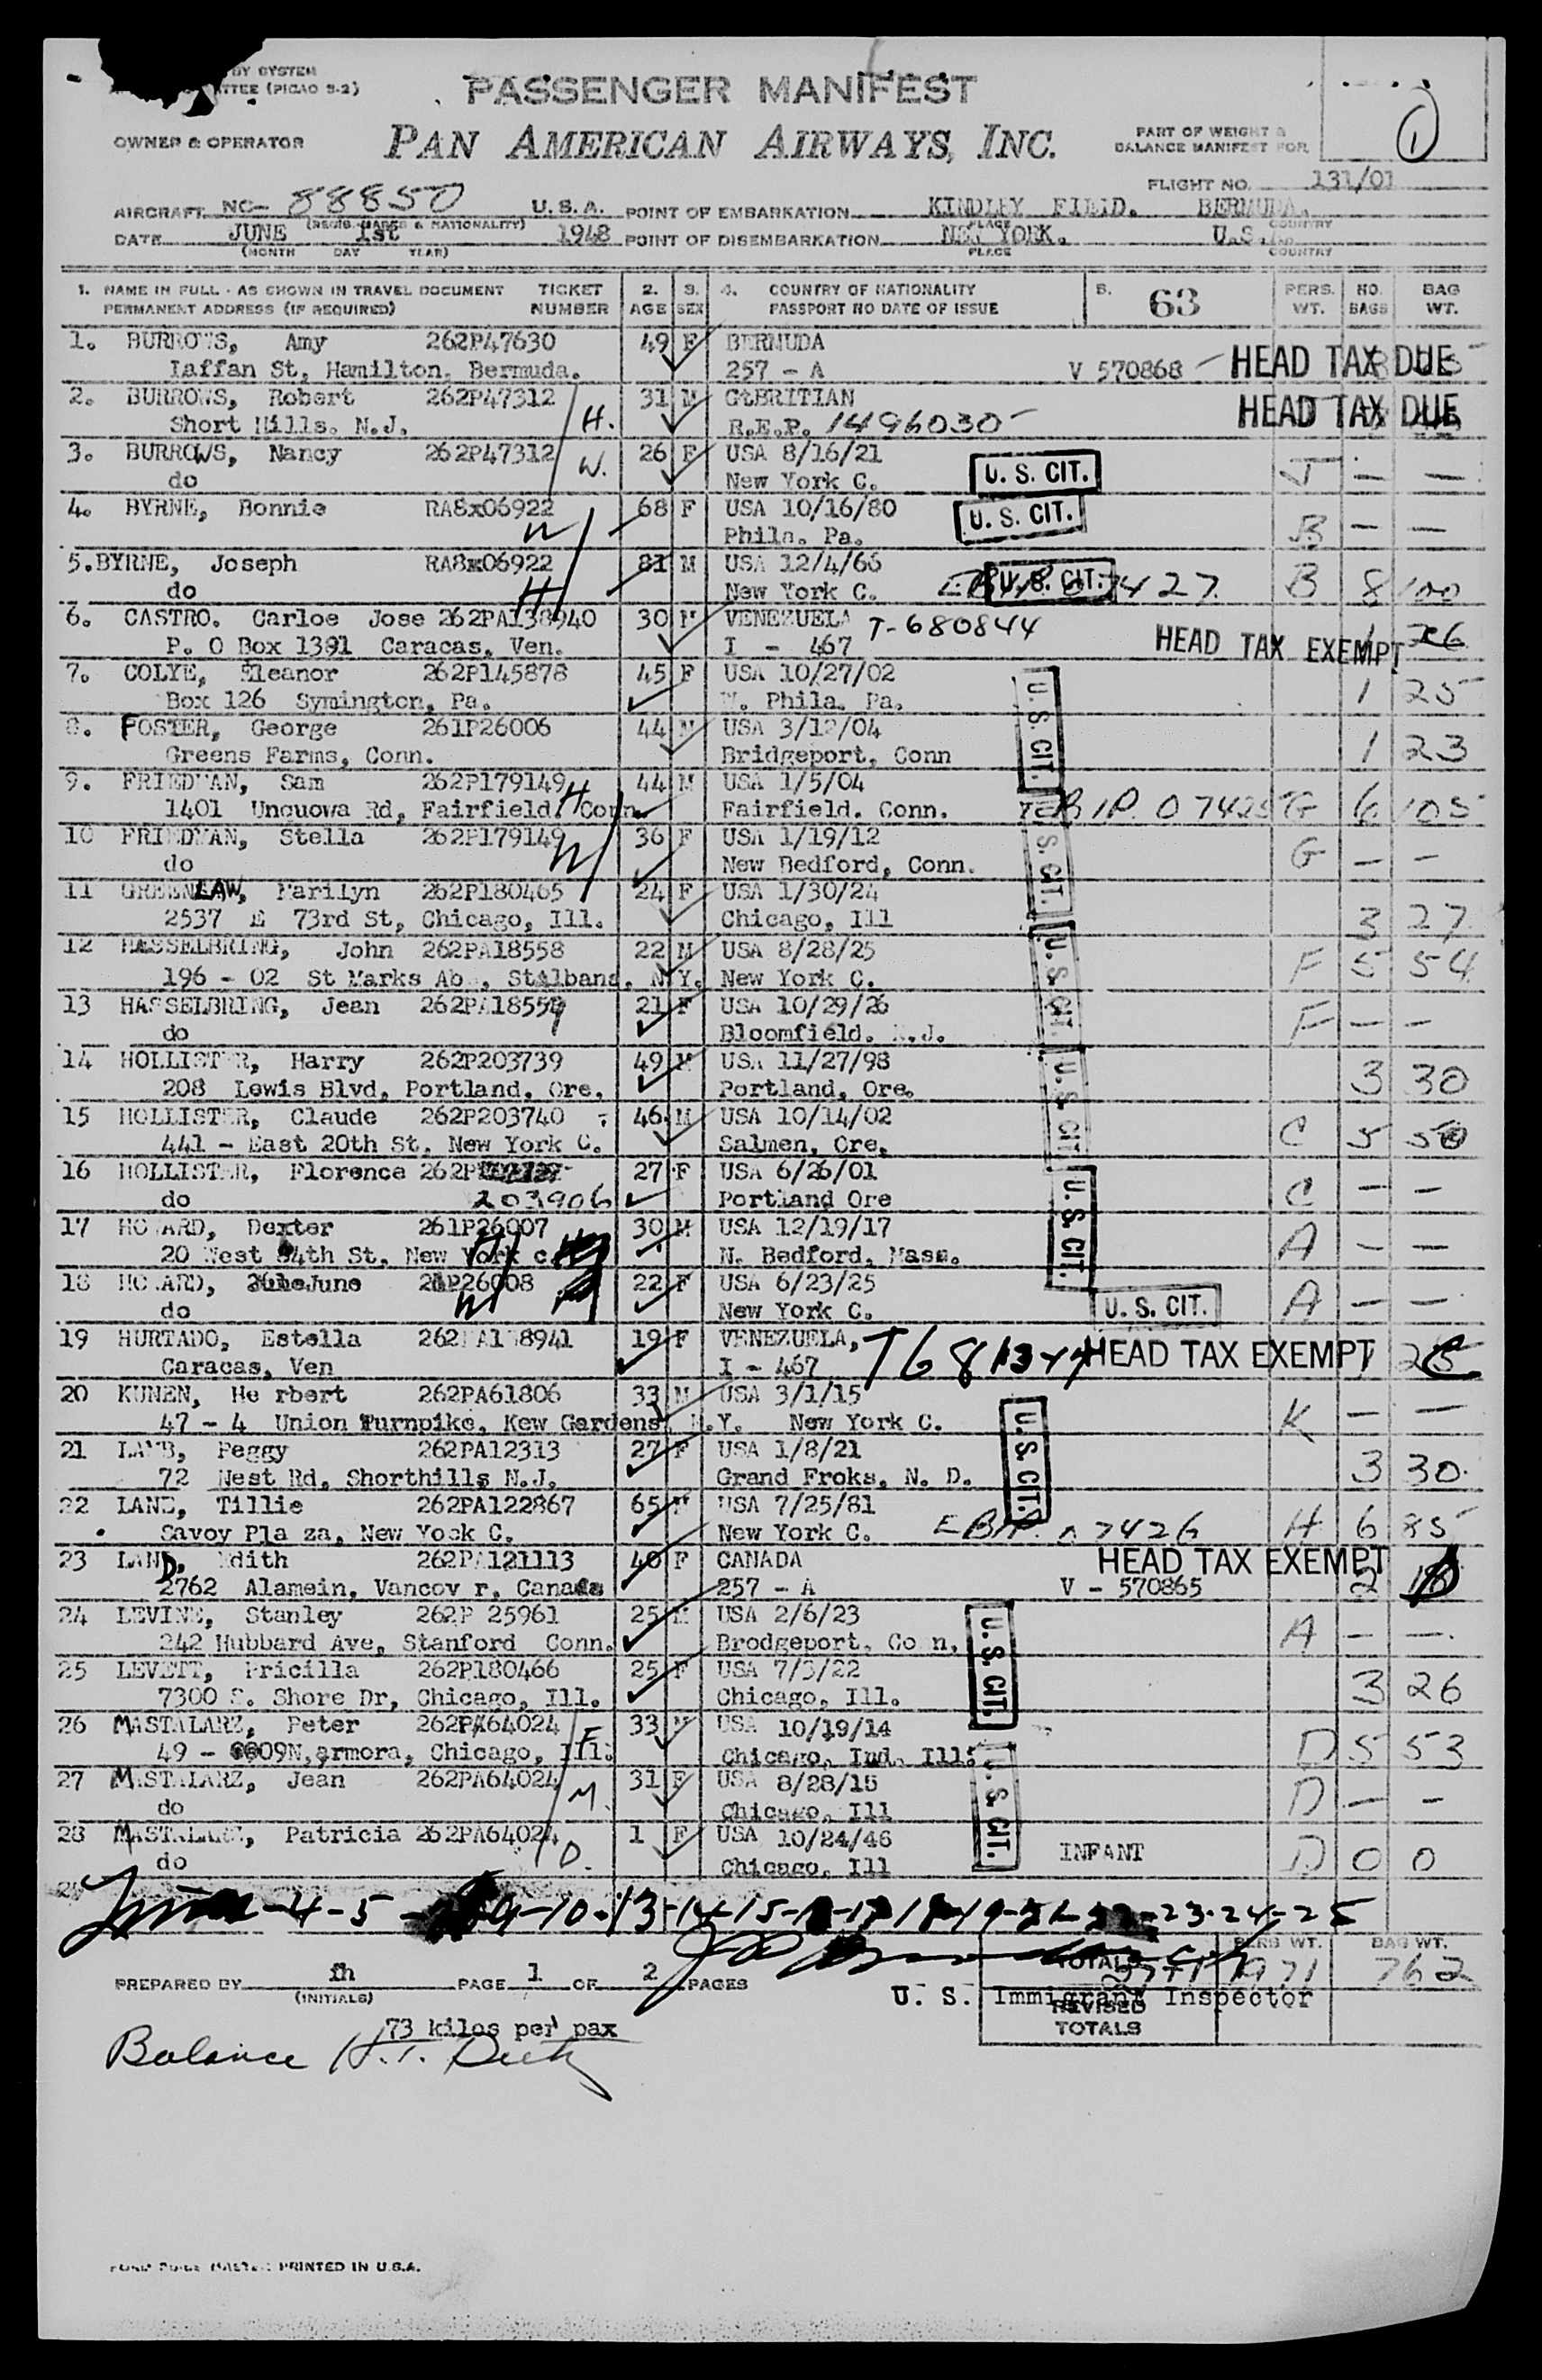 BY SYSTEM
TTEE (PICAO S-2)
PASSENGER MANIFEST
OWNER & OPERATOR
PAN AMERICAN AIRWAYS, INC.
PART OF WEIGHT &
BALANCE MANIFEST FOR
1
FLIGHT NO. 131/01
AIRCRAFT NC- 88850 U.S.A. POINT OF EMBARKATION KINDLEY FIELD. BERMUDA.
(REGIS. MARKS & NATIONALITY) PLACE COUNTRY
DATE JUNE 1st 1948 POINT OF DISEMBARKATION NEW YORK. U.S.A.
(MONTH DAY YEAR) PLACE COUNTRY
1. NAME IN FULL - AS SHOWN IN TRAVEL DOCUMENT TICKET 2. 3. 4. COUNTRY OF NATIONALITY 5. 63 PERS. NO. BAG
PERMANENT ADDRESS (IF REQUIRED) NUMBER AGE SEX PASSPORT NO DATE OF ISSUE WT. BAGS WT.
1. BURROWS, Amy 262P47630 49 F BERMUDA
Laffan St, Hamilton, Bermuda. 257 - A V 570868 HEAD TAX DUE
2. BURROWS, Robert 262P47312 H. 31 M GtBRITIAN HEAD TAX DUE
Short Hills. N.J. R.E.P. 1496030
3. BURROWS, Nancy 262P47312 W. 26 F USA 8/16/21 U. S. CIT. J — —
do New York C.
4. BYRNE, Bonnie RA8x06922 W 68 F USA 10/16/80 U. S. CIT. B — —
Phila. Pa.
5.BYRNE, Joseph RA8x06922 H 81 M USA 12/4/66 U. S. CIT. B 8 100
do New York C. 7427
6. CASTRO. Carloe Jose 262PA138940 30 M VENEZUELA T-680844 HEAD TAX EXEMPT 1 26
P. O Box 1391 Caracas, Ven. I - 467
7. COLYE, Eleanor 262P145878 45 F USA 10/27/02 U. S. CIT. 1 25
Box 126 Symington, Pa. W. Phila. Pa.
8. FOSTER, George 261P26006 44 M USA 3/12/04 1 23
Greens Farms, Conn. Bridgeport, Conn
9. FRIEDMAN, Sam 262P179149 H 44 M USA 1/5/04 G 6 105
1401 Unquowa Rd, Fairfield Conn. Fairfield. Conn. 07425
10 FRIEDMAN, Stella 262P179149 W 36 F USA 1/19/12 U. S. CIT. G — —
do New Bedford, Conn.
11 GREENLAW, Marilyn 262P180465 24 F USA 1/30/24 3 27
2537 E 73rd St, Chicago, Ill. Chicago, Ill
12 HASSELBRING, John 262PA18558 22 M USA 8/28/25 U. S. CIT. F 5 54
196 - 02 St Marks Ab , Stalbans, N.Y. New York C.
13 HASSELBRING, Jean 262PA18559 21 F USA 10/29/26 F — —
do Bloomfield. N.J.
14 HOLLISTER, Harry 262P203739 49 M USA 11/27/98 U. S. CIT. 3 30
208 Lewis Blvd, Portland, Ore, Portland, Ore.
15 HOLLISTER, Claude 262P203740 46 M USA 10/14/02 C 5 50
441 - East 20th St, New York C. Salmen, Ore.
16 HOLLISTER, Florence 262P 203906 27 F USA 6/26/01 U. S. CIT. C — —
do Portland Ore
17 HOWARD, Dexter 261P26007 H 30 M USA 12/19/17 A — —
20 West 84th St, New York c N. Bedford, Mass.
18 HOWARD, June 261P26008 W 22 F USA 6/23/25 U. S. CIT. A — —
do New York C.
19 HURTADO, Estella 262PA138941 19 F VENEZUELA, HEAD TAX EXEMPT
Caracas, Ven I - 467
20 KUNEN, He rbert 262PA61806 33 M USA 3/1/15 K — —
47 - 4 Union Turnpike, Kew Gardens, N.Y. New York C.
21 LAMB, Peggy 262PA12313 27 F USA 1/8/21 U. S. CIT. 3 30
72 Nest Rd, Shorthills N.J. Grand Froks, N. D.
22 LANE, Tillie 262PA122867 65 USA 7/25/81 H 6 85
Savoy Pla za, New Yock C. New York C. 07426
23 LAND, Edith 262PA121113 40 F CANADA HEAD TAX EXEMPT
2762 Alamein, Vancov r, Canada 257 - A V - 570865 2
24 LEVINE, Stanley 262P 25961 25 M USA 2/6/23 U. S. CIT. A — —
242 Hubbard Ave, Stanford Conn. Brodgeport, Co n,
25 LEVETT, Pricilla 262P180466 25 F USA 7/3/22 3 26
7300 S. Shore Dr, Chicago, Ill. Chicago, Ill.
26 MASTALARZ, Peter 262PA64024 F 33 M USA 10/19/14 D 5 53
49 - 09N,armora, Chicago, Ill. Chicago, Ind. Ill.
27 MASTALARZ, Jean 262PA64024 M. 31 F USA 8/28/16 U. S. CIT. D — —
do Chicago, Ill
28 MASTALARZ, Patricia 262PA64024 D. 1 F USA 10/24/46 INFANT D 0 0
do Chicago, Ill
-4-5 9-10-13-14-15 23-24-25
PERS WT. BAG WT.
TOTALS 1971 762
PREPARED BY fh PAGE 1 OF 2 PAGES
(INITIALS)
U. S. Immigrant Inspector
REVISED
TOTALS
73 kilos per pax
Balance
PRINTED IN U.S.A.